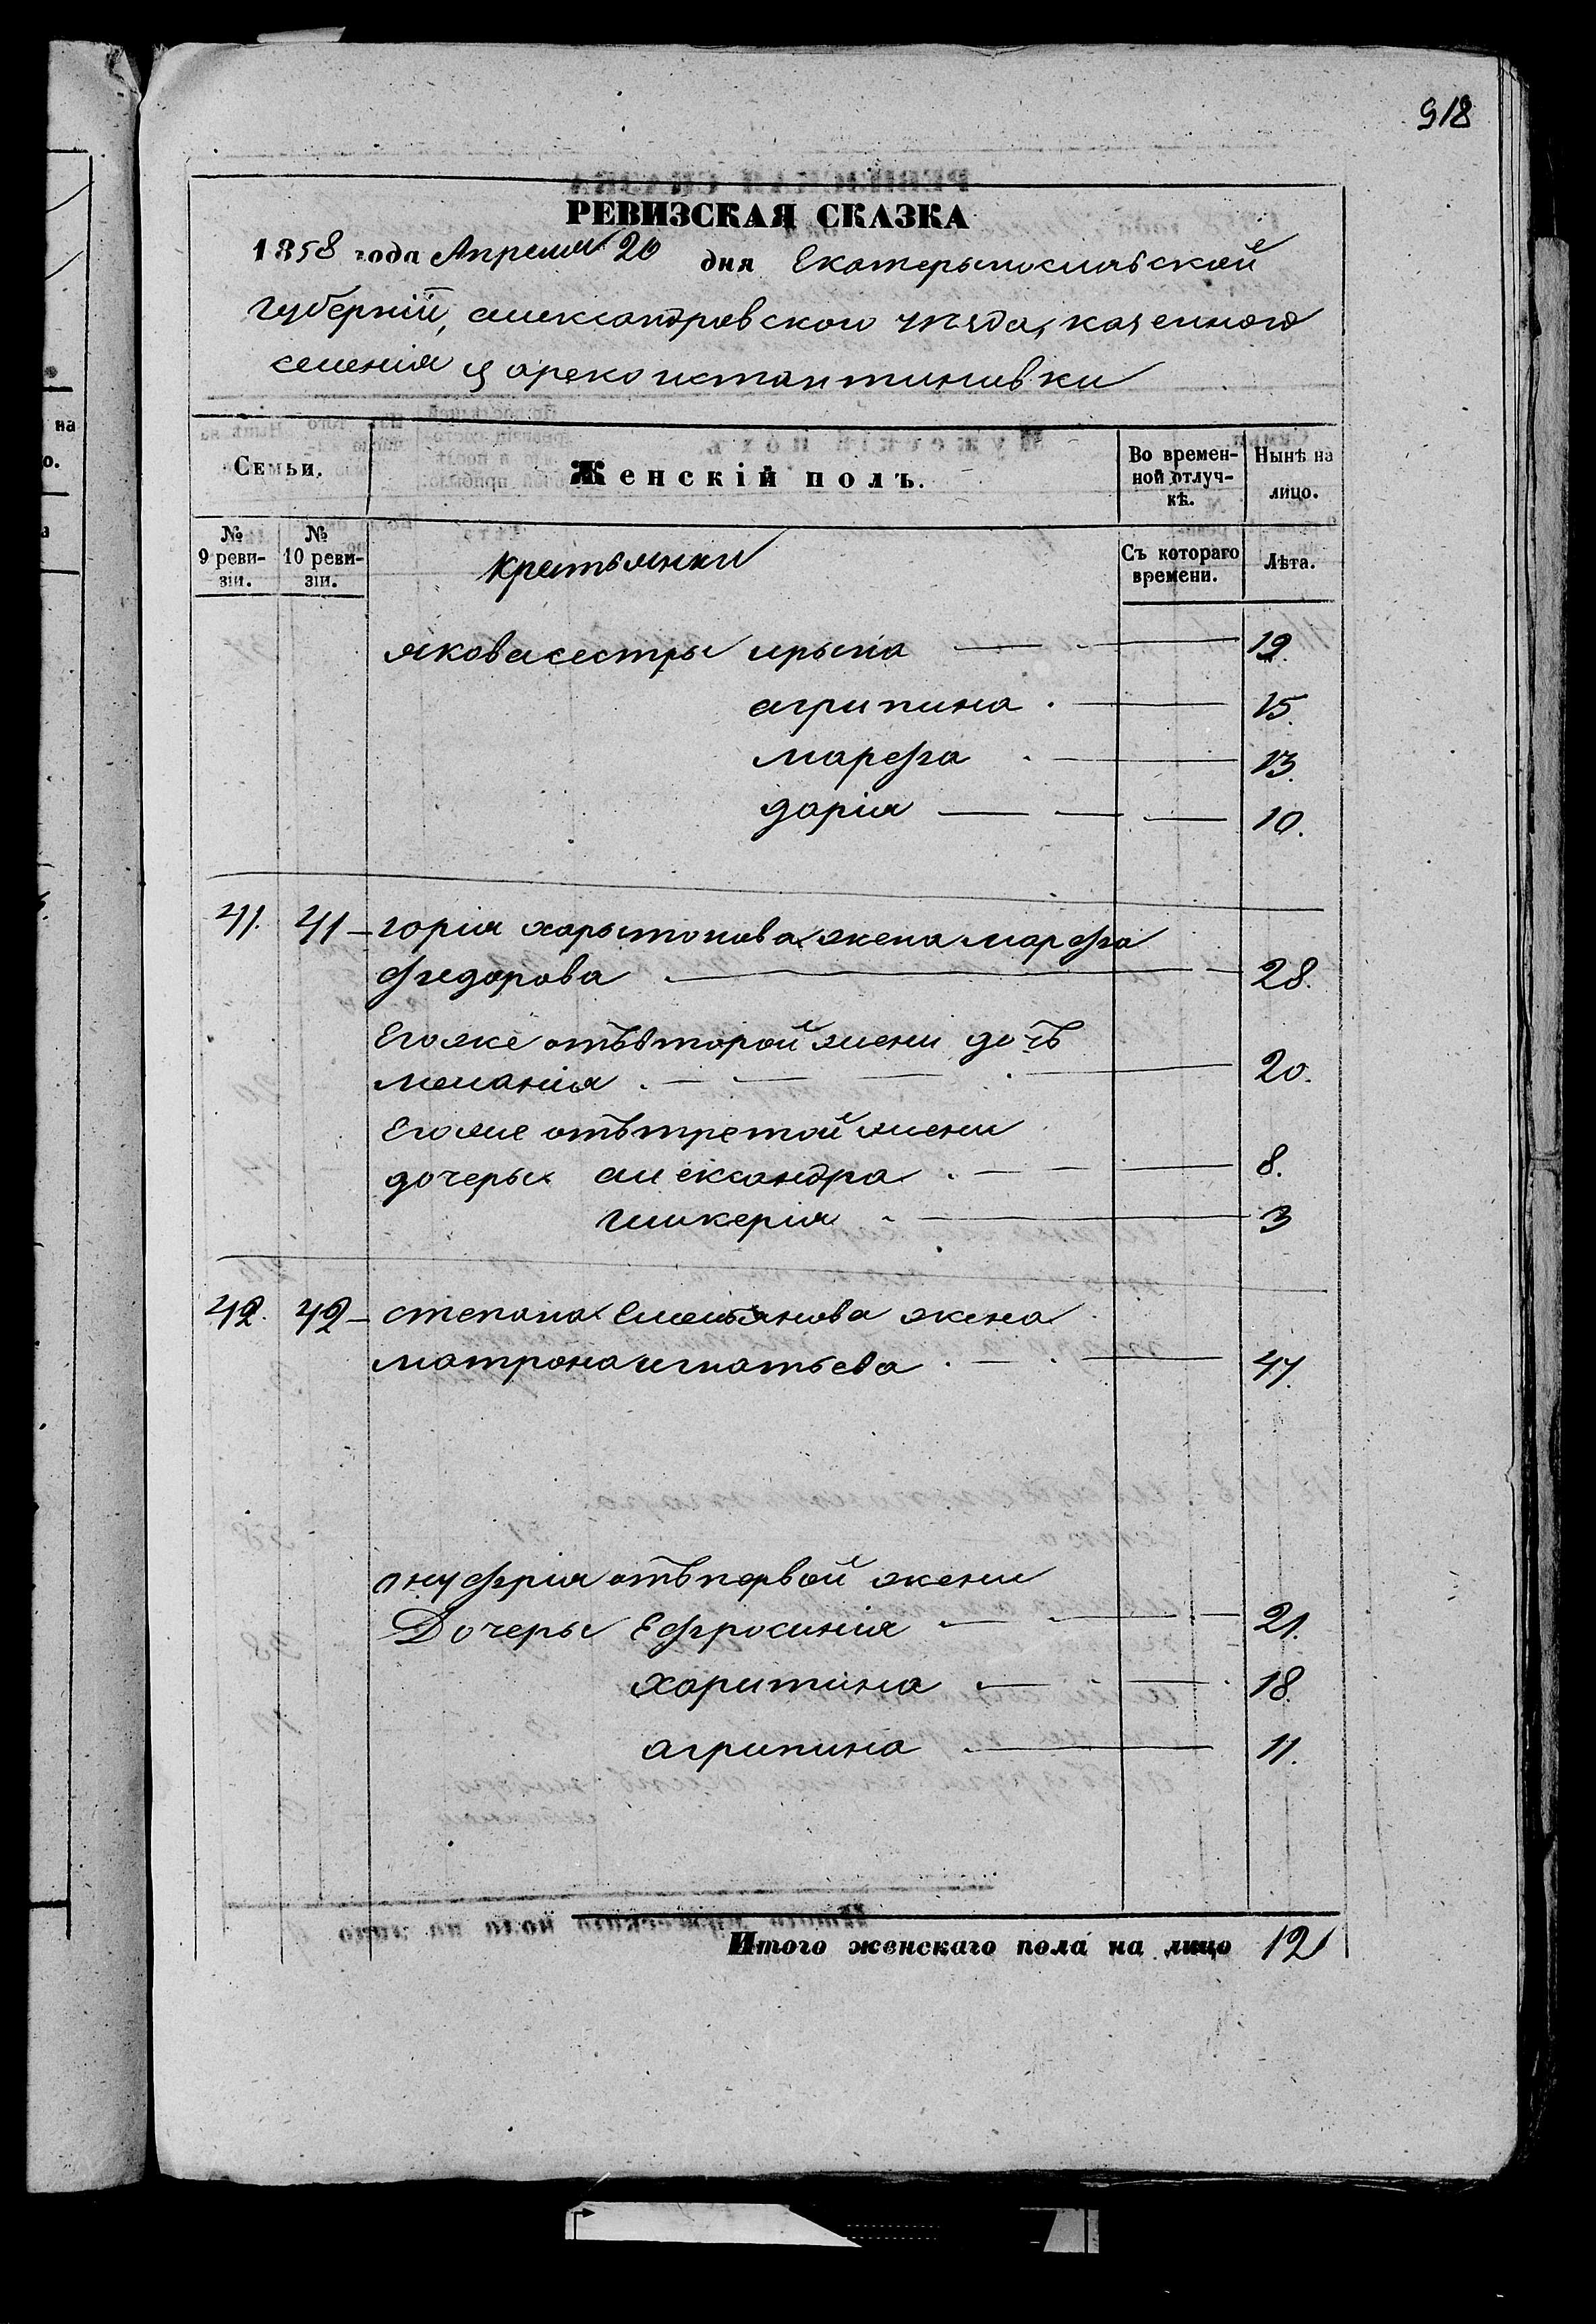 918
РЕВИЗСКАЯ СКАЗКА
1858 года Апреля 20 дня Екатерынославской
губерніи, александровскои уезда, казенного
селенія цареконстантиновки
Семьи. Женскій полъ. Во временной отлучкѣ. Нынѣ на лицо.
№ 9 ревизіи. № 10 ревизіи. крестьянки Съ котораго времени. Лѣта.
якова сестры ирына 19.
агрипина 15.
марефа 13.
дарія 10.
41. 41 горія харытонова жена марефа
федорова 28.
Егоже отъ второй жени дочъ
меланія 20.
Егоже отъ третой жени
дочеры александра 8.
гликерия 3
42. 42 степана Емельянова жена
матрона игнатьева 47.
онуфрія отъ первой жени
Дочеры Ефросинія 21.
харитина 18.
агрипина 11.
Итого женскаго пола на лицо 12